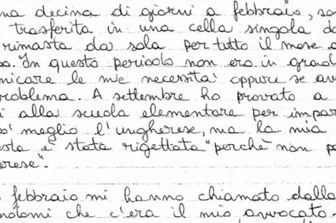 na decina di giorni a febbraio, so
trasferita in una cella singola do
rimasta da sola per tutto il mese d
o. In questo periodo non ero in grado
nicare le mie necessità oppure se av
problema. A settembre ho provato a
i alla scuola elementare per impar
po' meglio l'ungherese, ma la mia
esta è stata rigettata "perché non p
erese".
febbraio mi hanno chiamato dalla
ndomi che c'era il mio avvocato